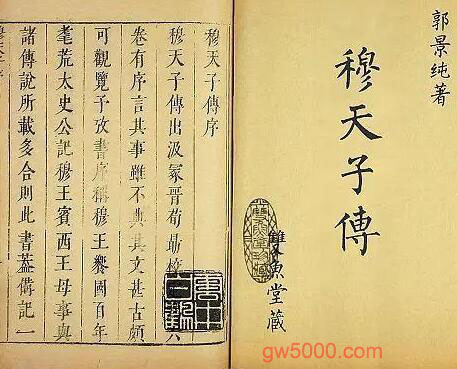 郭景純著
穆天子傳
雙魚堂藏
穆天子傳序
穆天子傳出汲冢晉荀勗校六
卷有序言其事雖不典其文甚古頗
可觀覽予攷書序稱穆王饗國百年
耄荒太史公記穆王賓西王母事與
諸傳說所載多合則此書蓋備記一
gw5000.com